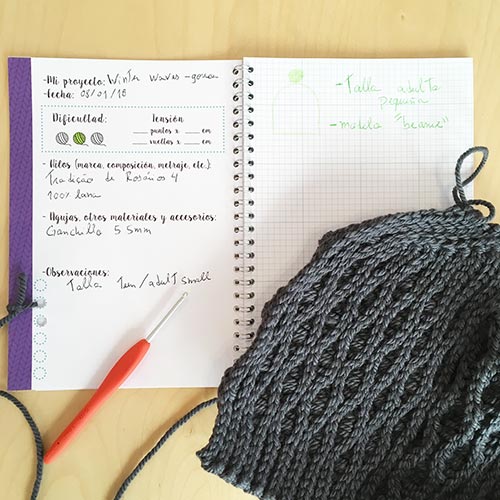 - Mi proyecto: Winter waves - gorro
- fecha: 03/01/18
Dificultad:
Tensión
puntos x cm
vueltas x cm
- Hilos (marca, composición, metraje, etc.):
Tradição de Rosários 4
100% lana
- Agujas, otros materiales y accesorios:
Ganchillo 5.5mm
- Observaciones:
Talla Teen/adult small
- Talla adulto
pequeña
- modelo "beanie"